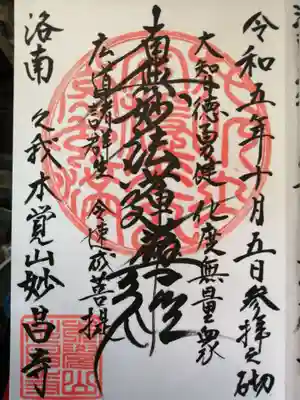 令和五年十月五日参拝之砌
大智徳勇健 化度無量衆
南無妙法蓮華経
広導諸群生 令速成菩提
洛南 久我本覚山妙昌寺